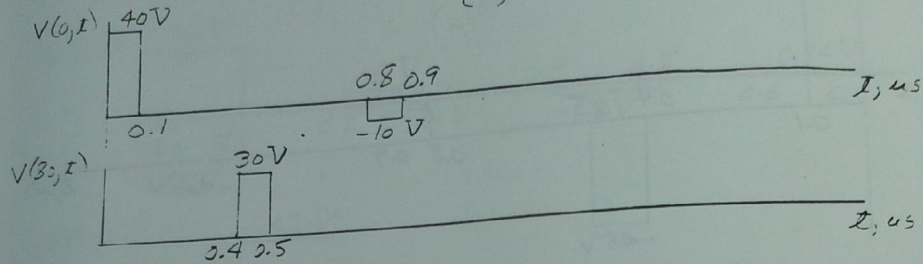 V(0,t) 40V
0.8 0.9
t, us
0.1
-10 V
V(30,t)
30V
t, us
0.4 0.5